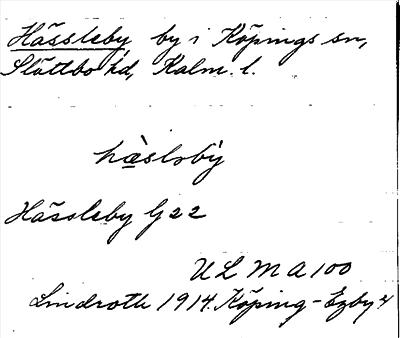 Hässleby, by i Köpings sn,
Slättbo hd, Kalm. l.
hæ̀sləbý
Hässleby G22
ULMA 100
Lindroth 1914. Köping-Egby 4